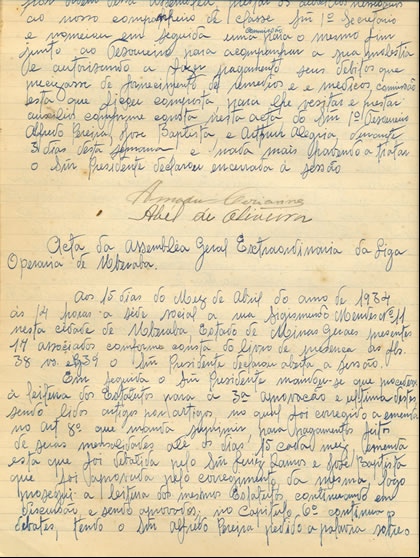 ao nosso companheiro de classe Snr 1º Secretario
e nomeiou em seguida uma para o mesmo fim
commissão
junto ao Thesoureiro para acompanhar a sua molestia
e autorisando a fazer pagamento seus debitos que
precizasse de fornecimento de remedios e e medicos, commissão
esta que ficou composta para lhe vesitar e prestar
auxilio comforme consta nesta acta do Snr 1º Thesoureiro
Alfredo Pereira, Jose Baptista e Arthur Alegria durante
dias desta semana e nada mais havendo a tratar
o Snr Presidente declarou encerrada a sessão
Abel de Oliveira
Acta da Assemblea Geral Extraordinaria da Liga
Operaria de Uberaba.
Aos 15 dias do Mez de Abril do anno de 1934
ás 14 horas a séde social a rua Segismundo Mendes nº 11
nesta cidade de Uberaba Estado de Minas Geraes presentes
17 associados comforme consta do livro de presença as fls.
38 vs. e 39 o Snr Presidente declarou aberta a sessão.
Em seguida o Snr Presidente mandou se que procedeu
a leitura dos Estatutos para a 3ª aprovação e ultima destes
sendo lidos artigos por artigos, no qual foi corregido a ementa
no Art 8º que manda suprimir para pagamentos feito
de suas mensalidades até os dias 15 cada mez, ementa
esta que foi debatida pelo Snr Luiz Ramos e José Baptista
que foi aprovada pelo corregimento da mesma, logo
prosegui a leitura dos mesmos Estatutos continuando em
discusão, e sendo aprovados, no Capitulo 6º continuou
debates, tendo o Snr Alfredo Pereira pedido a palavra sobre